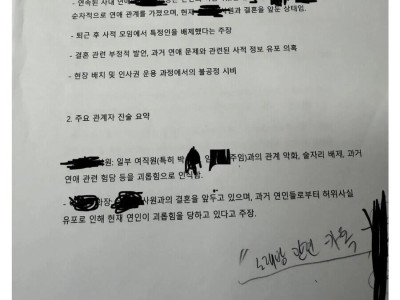 - 연속된 사내 연애
순차적으로 연애 관계를 가졌으며, 현재 사원과 결혼을 앞둔 상태임.
- 퇴근 후 사적 모임에서 특정인을 배제했다는 주장
- 결혼 관련 부정적 발언, 과거 연애 문제와 관련된 사적 정보 유포 의혹
- 현장 배치 및 인사권 운용 과정에서의 불공정 시비
2. 주요 관계자 진술 요약
원: 일부 여직원(특히 박 임 주임)과의 관계 악화, 술자리 배제, 과거
연애 관련 험담 등을 괴롭힘으로 인식함.
- 과장, 사원과의 결혼을 앞두고 있으며, 과거 연인들로부터 허위사실
유포로 인해 현재 연인이 괴롭힘을 당하고 있다고 주장.
" 노래방 관련